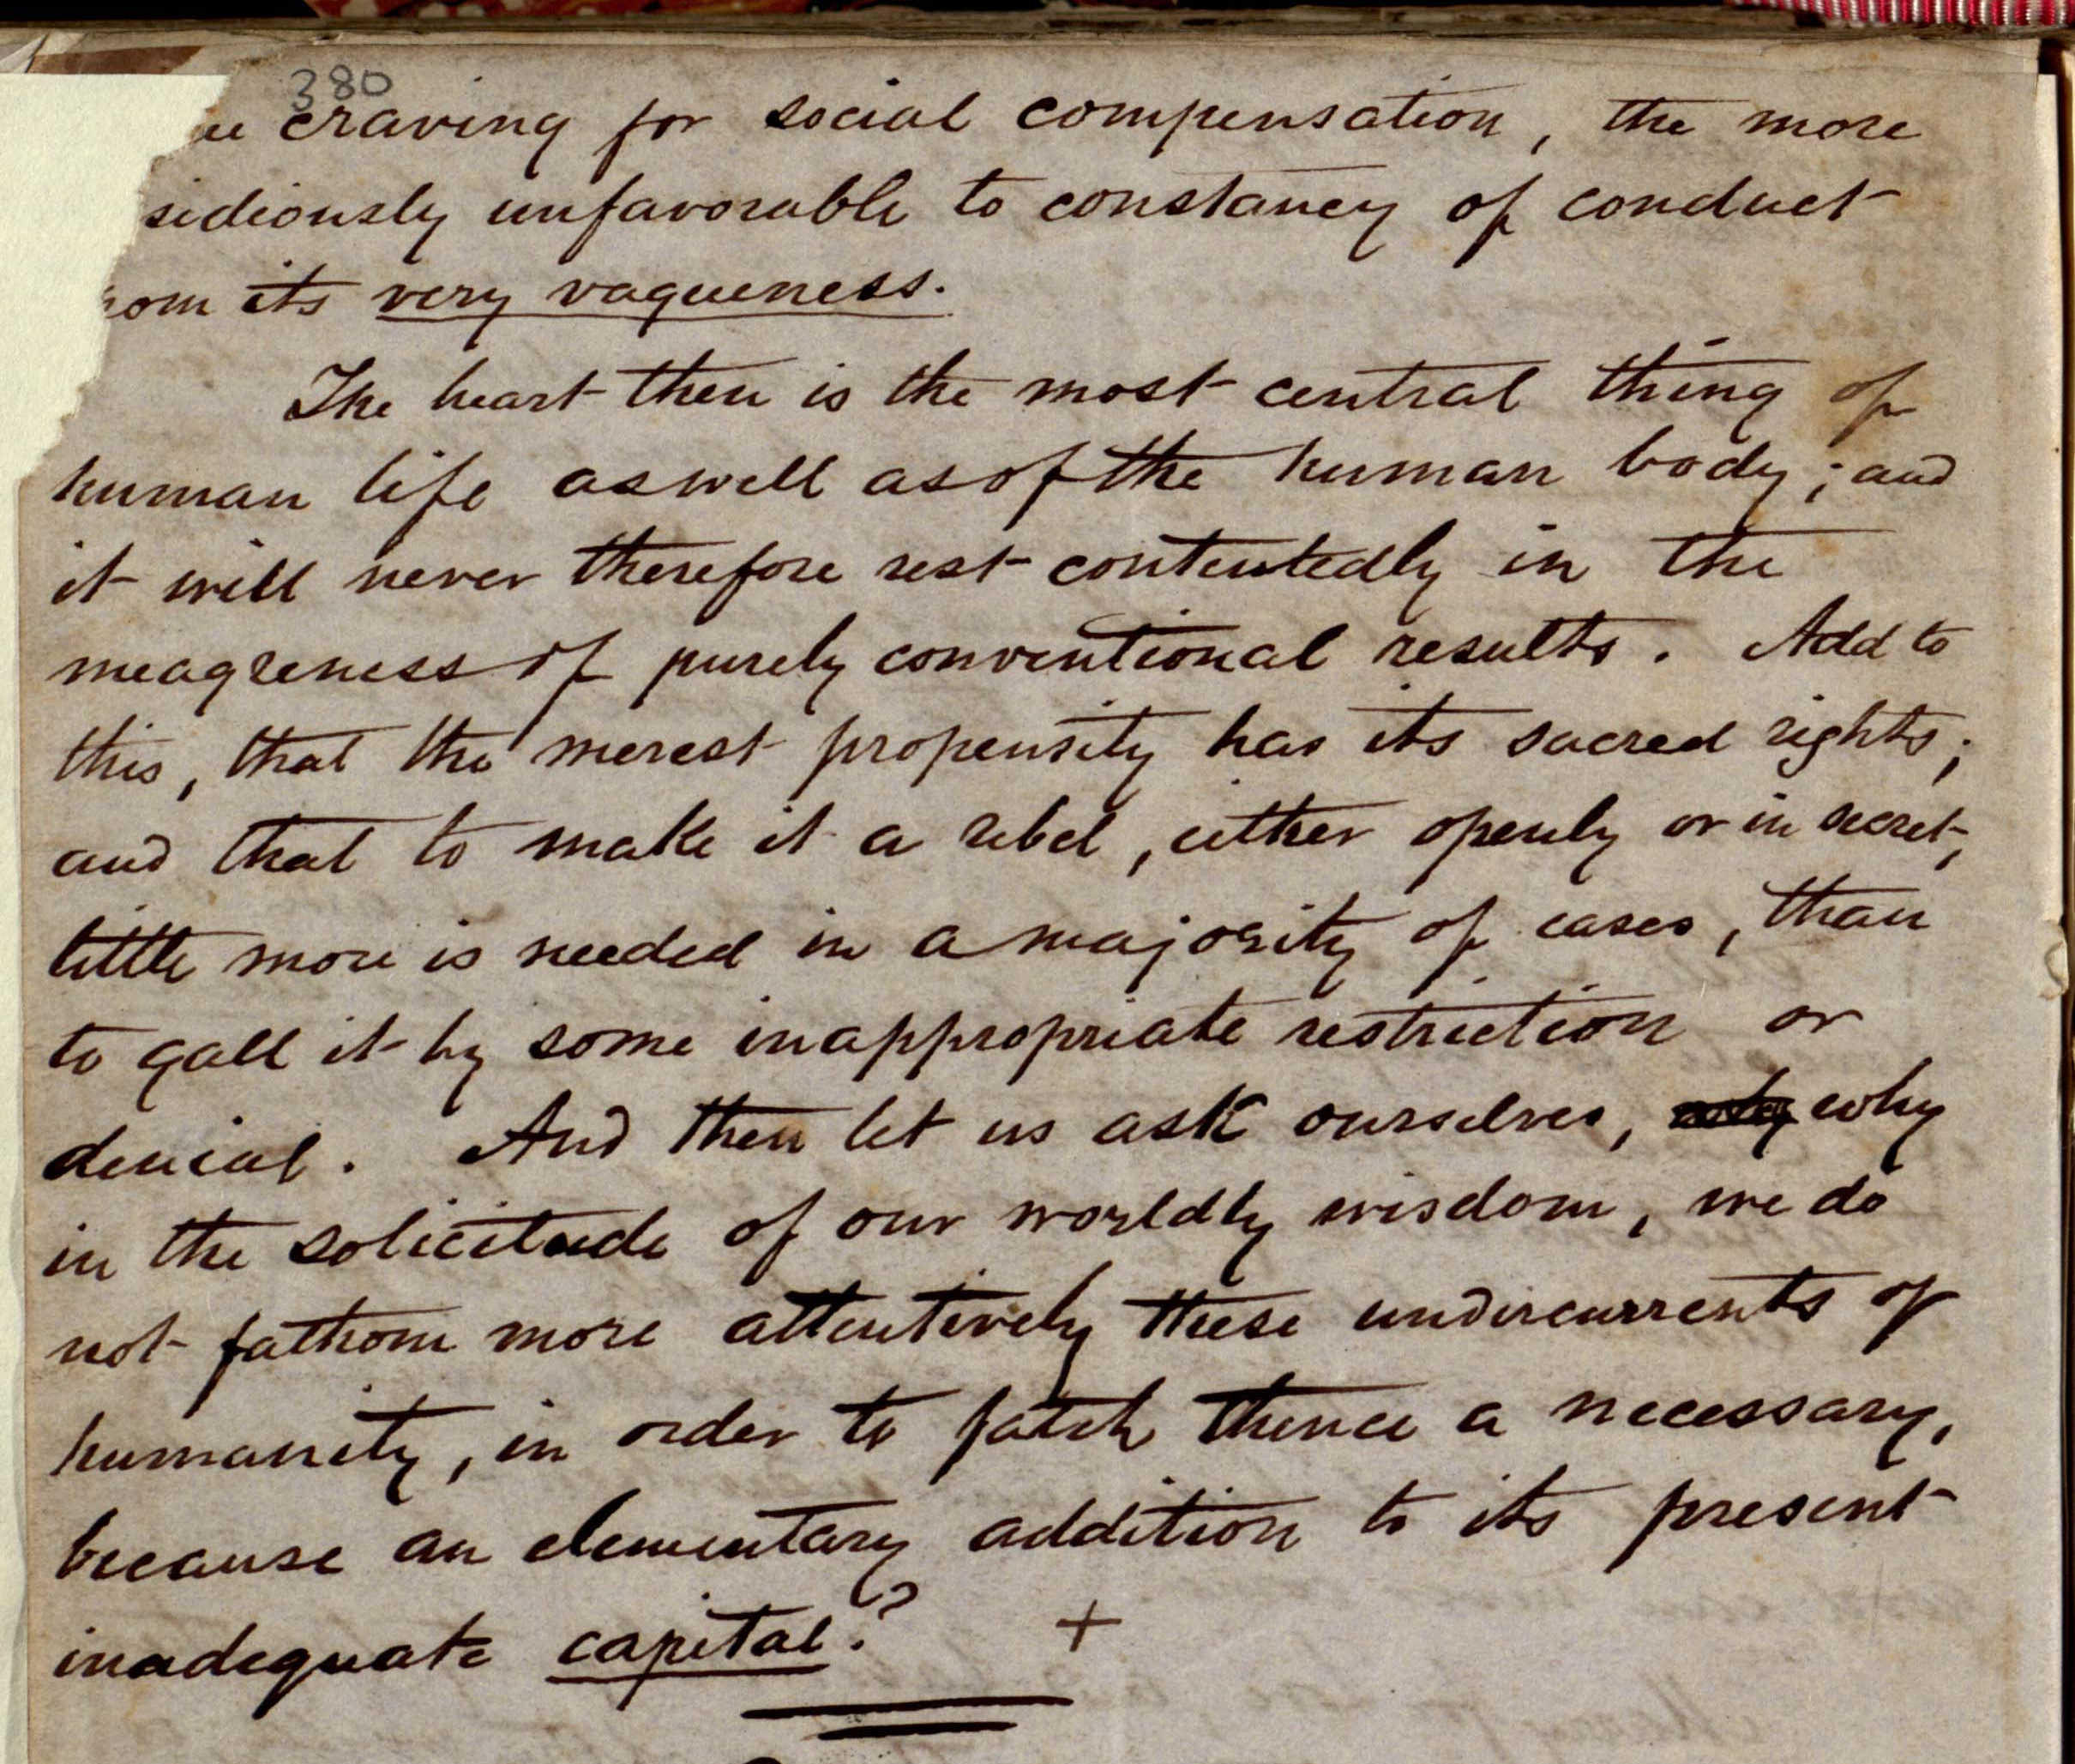 380
craving for social compensation, the more
sidiously unfavorable to constancy of conduct
om its very vagueness.
The heart then is the most central thing of
human life aswell as of the human body; and
it will never therefore rest contentedly in the
meagreness of purely conventional results. Add to
this, that the merest propensity has its sacred rights;
and that to make it a rebel, either openly or in secret,
little more is needed in a majority of cases, than
to gall it by some inappropriate restriction or
denial. And then let us ask ourselves, why
in the solicitude of our worldly wisdom, we do
not fathom more attentively these undercurrents of
humanity, in order to fatch thence a necessary,
because an elementary addition to its present
inadequate capital? +